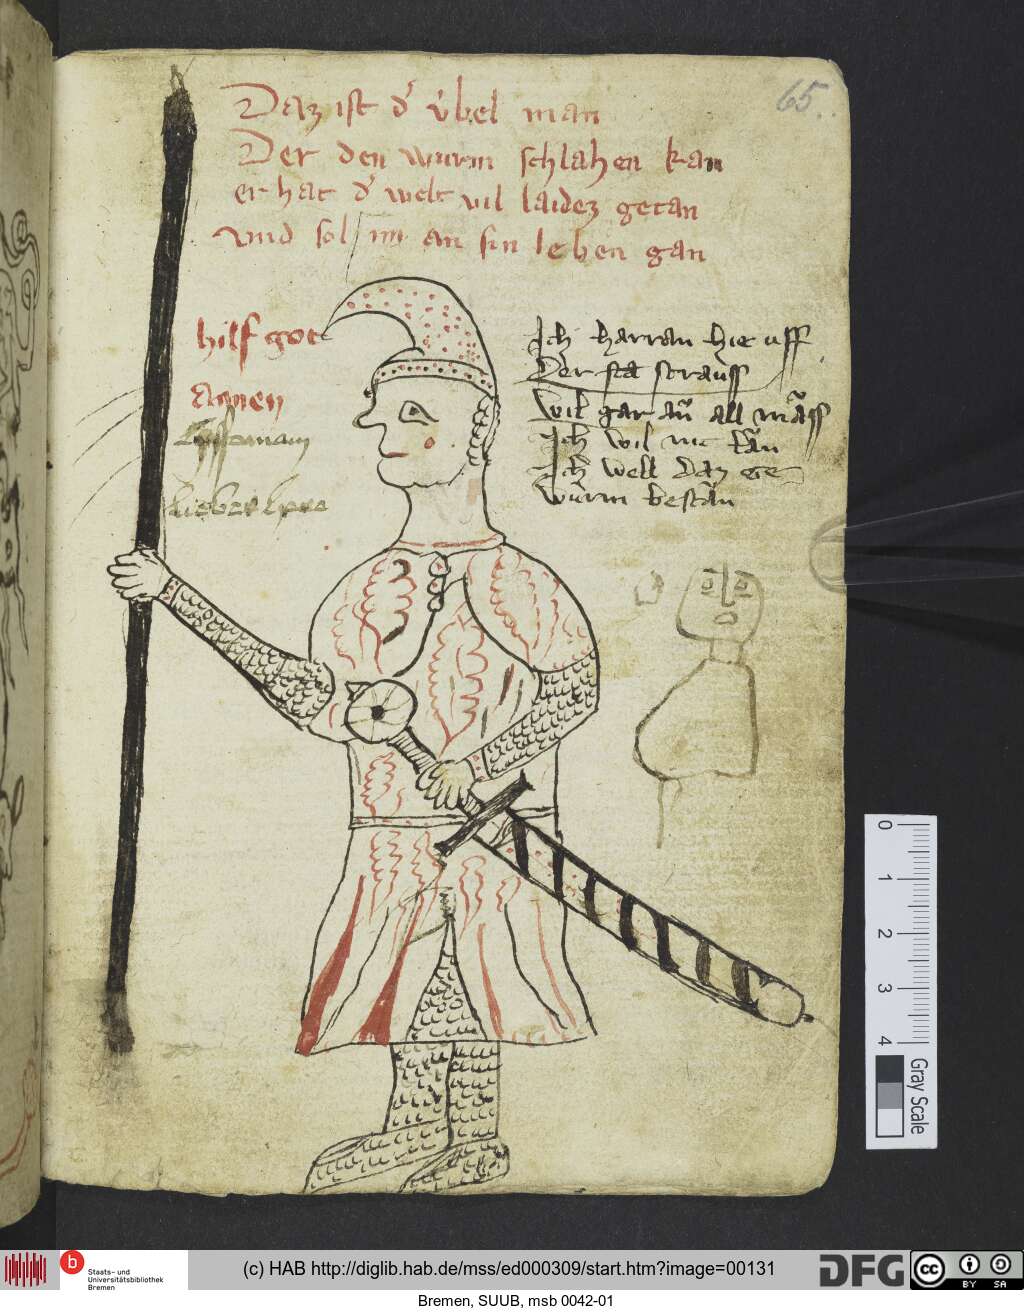 65
Daz ist d᾽ v̇bel man
Der den wurm schlahen kan
er hat d᾽ welt vil laidez getan
vnd sol im an sin leben gan
hilf got
Ich harran hie uff
Der sta strauss
Wil gar all
Ich wil nit
Ich well daz ge
wurm bestān
0
1
2
3
4
Gray Scale
b
Staats- und
Universitätsbibliothek
Bremen
(c) HAB http://diglib.hab.de/mss/ed000309/start.htm?image=00131
DFG
cc BY SA
Bremen, SUUB, msb 0042-01